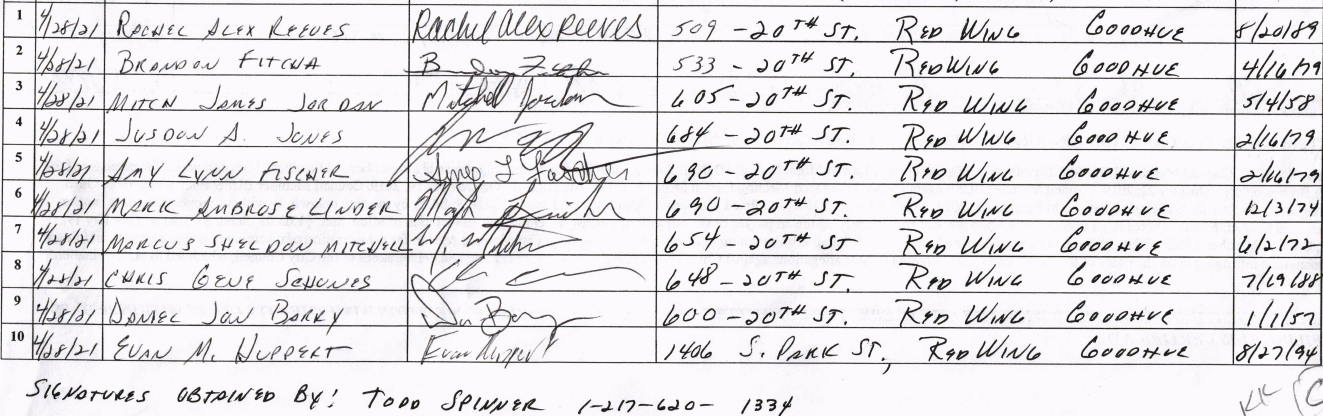 1 4/28/21 RACHEL ALEX REEVES Rachel Alex Reeves 509 - 20TH ST. RED WING GOODHUE 8/20/89
2 4/28/21 BRANDON FITCHA 533 - 20TH ST. RED WING GOODHUE 4/16/79
3 4/28/21 MITCH JAMES JORDAN Mitchel Jordan 605 - 20TH ST. RED WING GOODHUE 5/4/58
4 4/28/21 JUSDON A. JONES 684 - 20TH ST. RED WING GOODHUE 2/16/79
5 4/28/21 AMY LYNN FISCHER Amy L Fischer 690 - 20TH ST. RED WING GOODHUE 2/16/79
6 4/28/21 MARK AMBROSE LINDER 690 - 20TH ST. RED WING GOODHUE 12/3/74
7 4/28/21 MARCUS SHELDON MITCHELL 654 - 20TH ST RED WING GOODHUE 6/2/72
8 4/28/21 CHRIS GENE SCHONES 648 - 20TH ST. RED WING GOODHUE 7/19/88
9 4/28/21 DANIEL JON BARRY 600 - 20TH ST. RED WING GOODHUE 1/1/57
10 4/28/21 EVAN M. HUPPERT Evan Huppert 1406 S. PARK ST, RED WING GOODHUE 8/27/94
SIGNATURES OBTAINED BY: TODD SPINNER 1-217-620- 1334
KK C